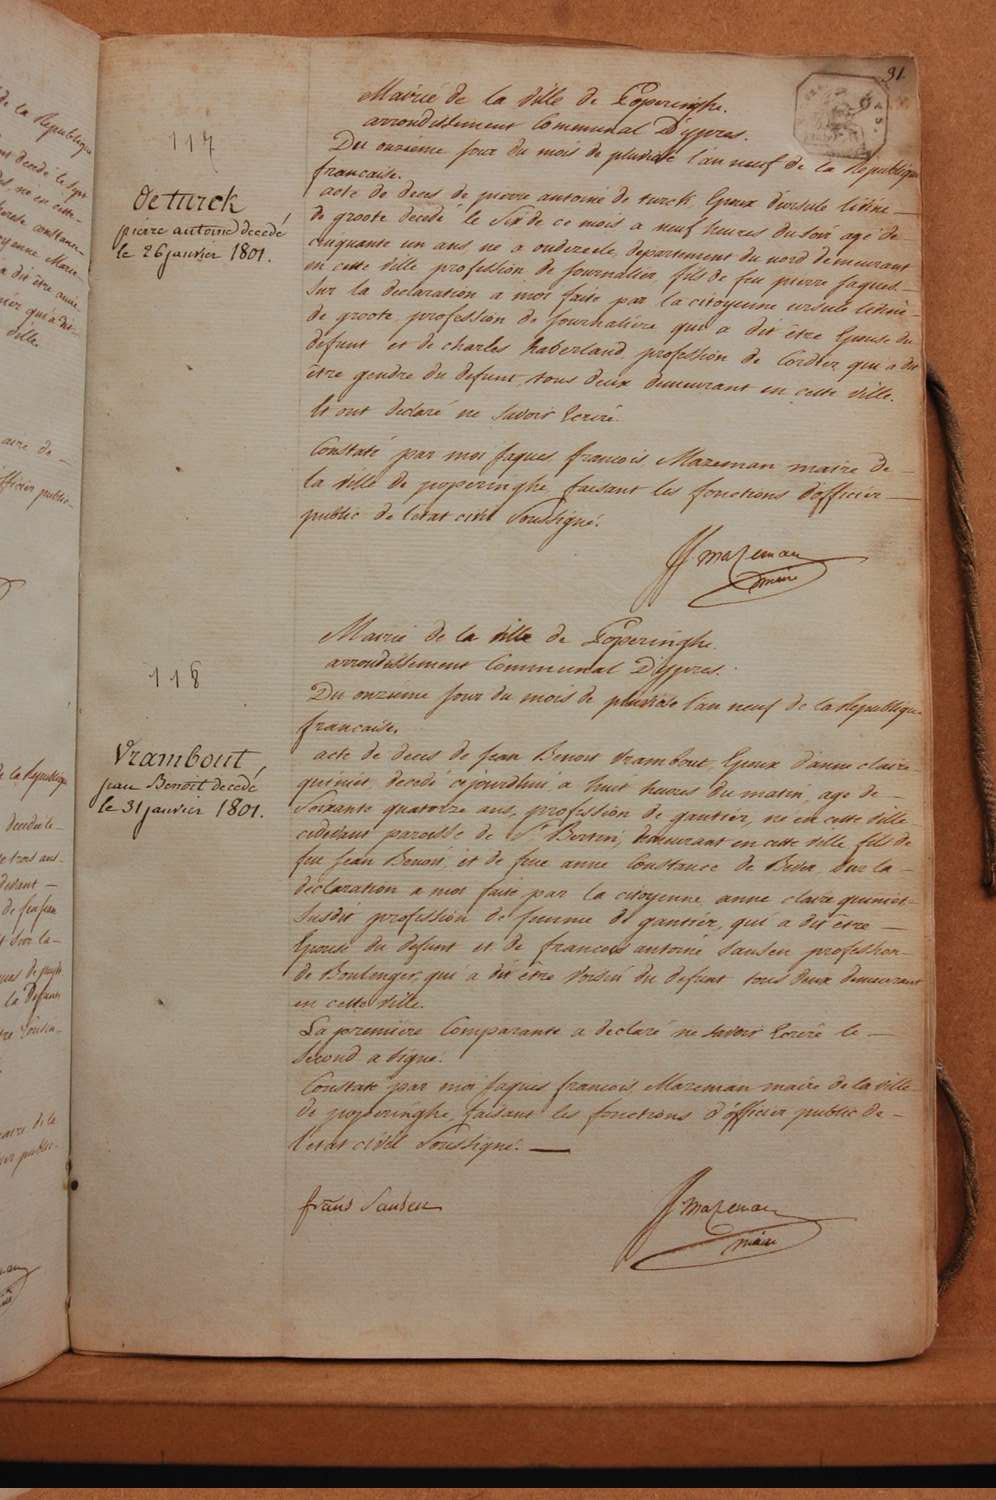 91.
117
De turck
piere antoine decedé
le 26 janvier 1801.
Mairie de la ville de Poperinghe.
arrondissement Communal D'ypres.
Du onzieme jour du mois de pluviose l'an neuf de la Republique
francaise.
acte de deces de pierre antoine de turck, Epoux d'ursule
de groote decedé le Six de ce mois a neuf heures du soir agé de
cinquante un ans, né a oudezeele, departement du nord demeurant
en cette ville profession de journalier, fils de feu pierre jaques
Sur la declaration a moi faite par la citoyenne ursule
de groote profession de journaliere qui a dit être Epouse du
defunt et de charles haberland profession de Cordier qui a dit
être gendre du defunt, tous deux demeurant en cette ville.
Et ont declaré ne savoir Ecrire.
Constaté par moi jaques francois Mazeman maire de
la ville de poperinghe, faisant les fonctions d'officier
public de l'etat civil Soussigné.
JJ mazeman
maire
118
Vrambout
jean Benoît decedé
le 31 janvier 1801.
Mairie de la ville de Poperinghe.
arrondissement Communal D'ypres.
Du onzieme jour du mois de pluviose l'an neuf de la Republique
francaise.
acte de deces de Jean Benoit Vrambout, Epoux d'anne claire
quiniet, decedé cejourdhui a huit heures du matin, age de
Soixante quatorze ans, profession de gantier, né en cette ville
cidevant paroisse de St Bertin, demeurant en cette ville fils de
feu Jean Benoit et de feue anne Constance de Sur la
declaration a moi faite par la citoyenne anne claire quiniet
Susdit profession de femme de gantier, qui a dit être
Epouse du defunt et de francois antoine Sansen profession
de Boulenger, qui a dit être voisin du defunt tous deux demeurant
en cette ville.
La premiere Comparante a declaré ne savoir Ecrire le
Second a signé.
Constaté par moi jaques francois Mazeman maire de la ville
de poperinghe, faisant les fonctions d'officier public de
l'etat civil Soussigné.
frans Sansen
JJ mazeman
maire